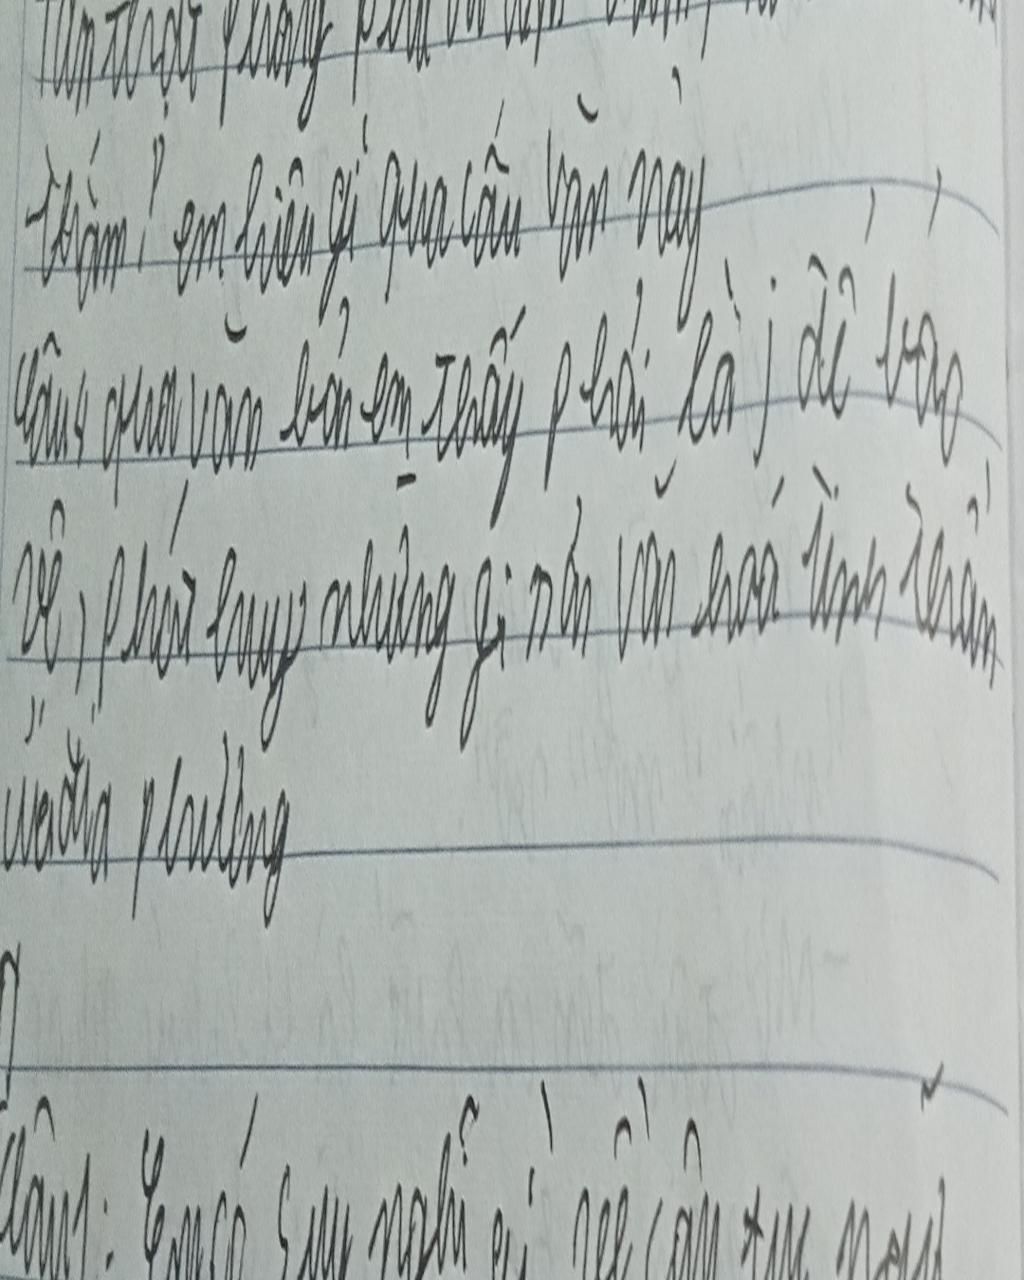 thật phong phú
thắm! em hiểu gì qua câu văn này
Câu 4 qua văn bản em thấy phải làm j để bảo
vệ, phát huy những gì nền văn hoá tinh thần
của địa phương
Câu 1: Em có suy nghĩ gì về câu tục ngữ